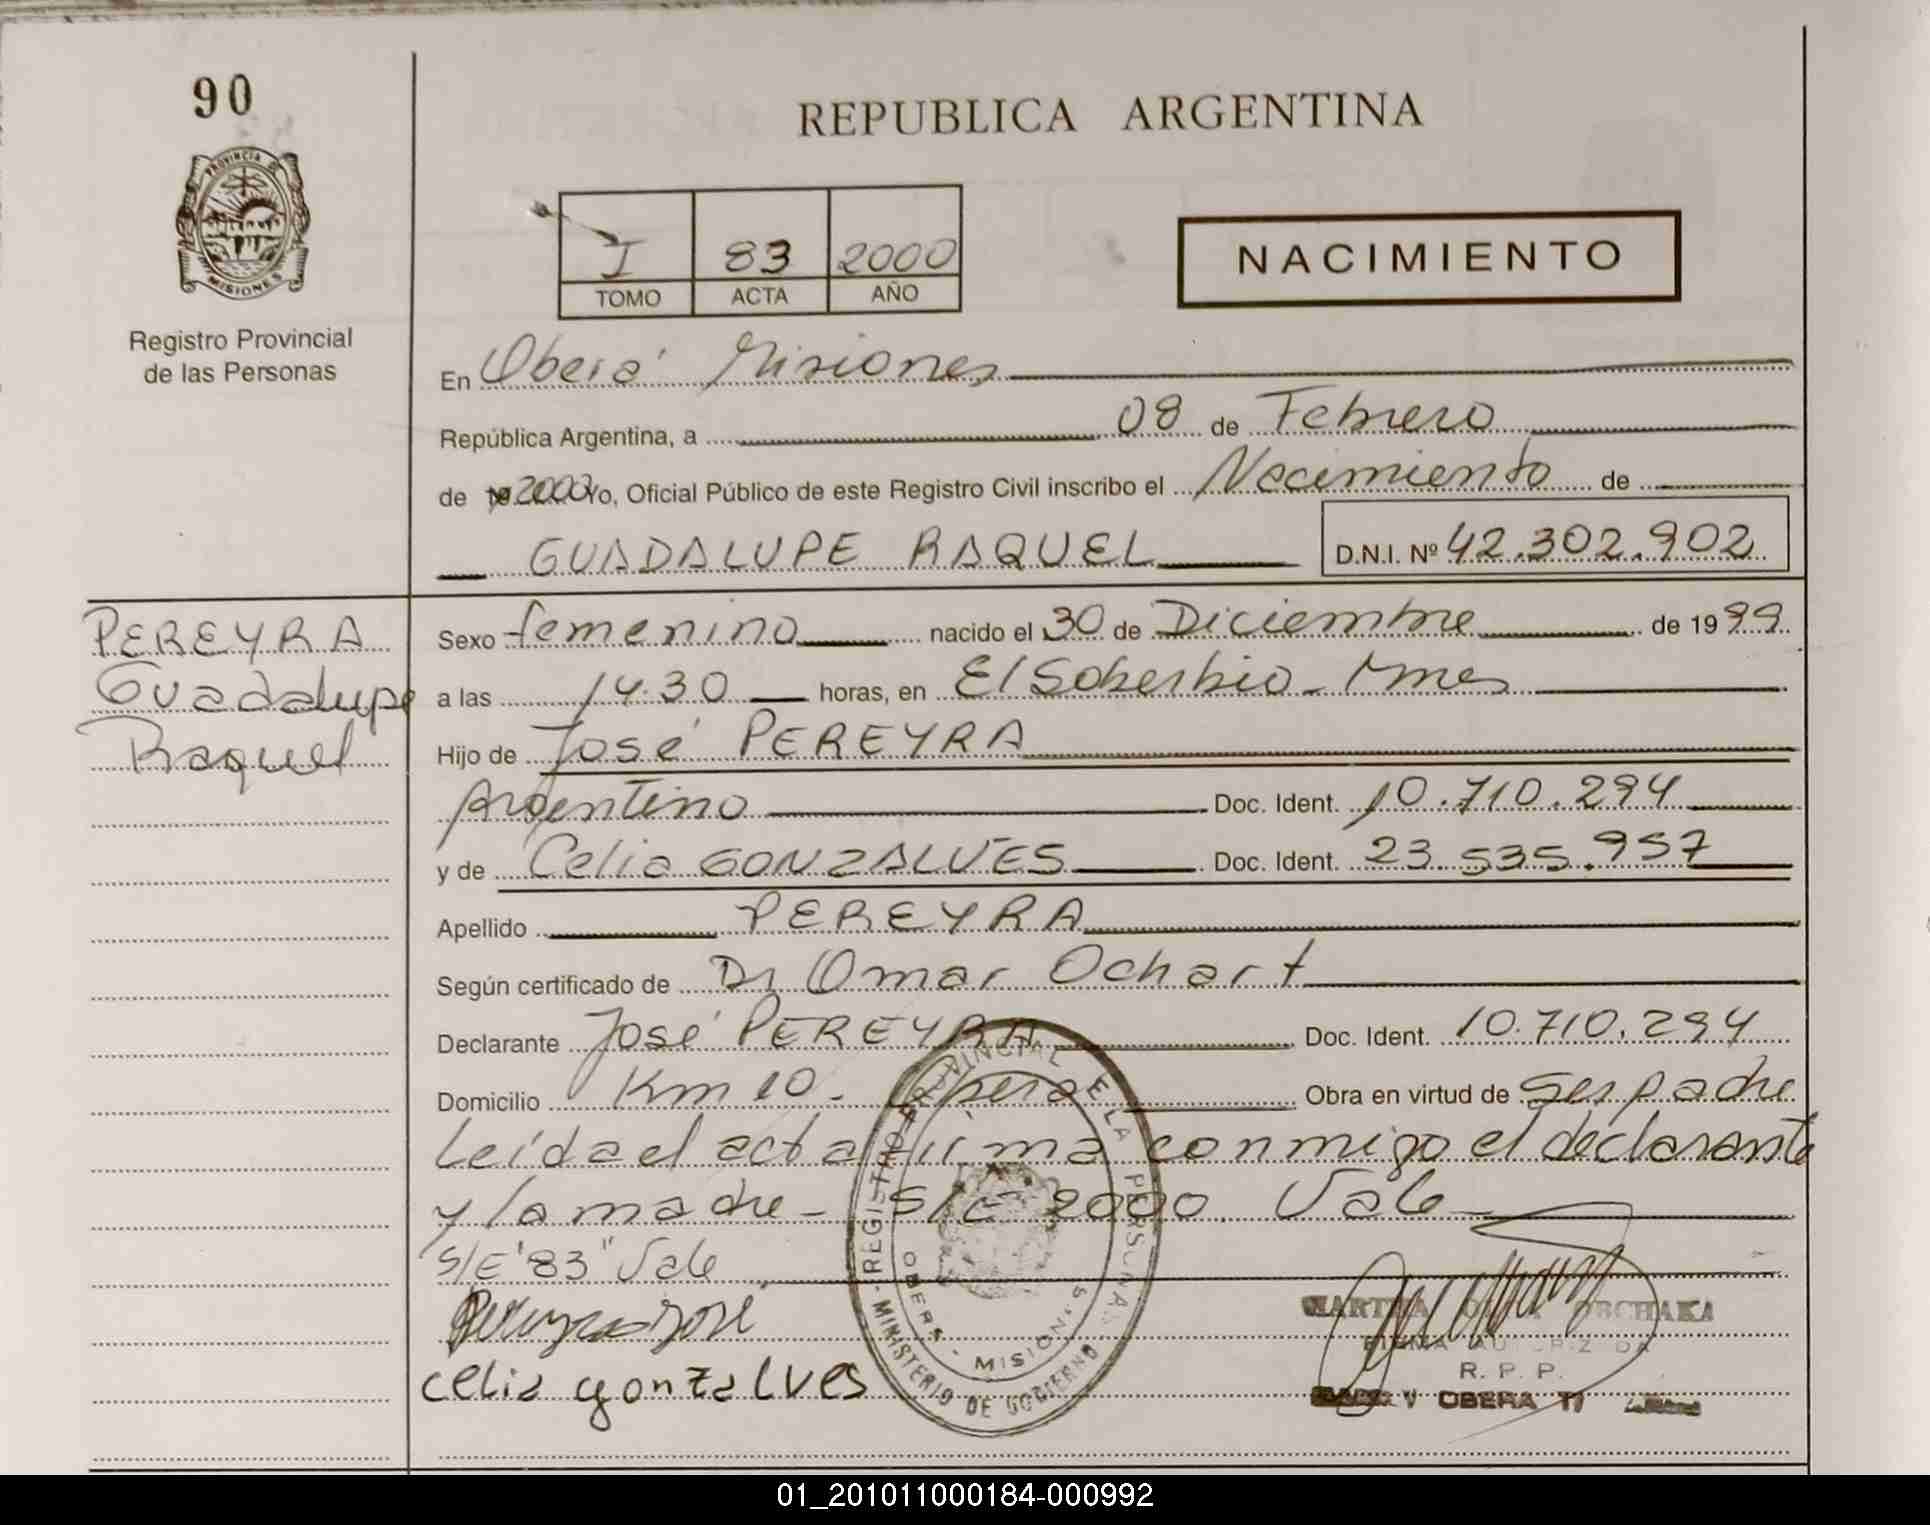 90
PROVINCIA D
MISIONES
Registro Provincial
de las Personas
REPUBLICA ARGENTINA
I 83 2000
TOMO ACTA AÑO
NACIMIENTO
En Oberá Misiones
República Argentina, a 08 de Febrero
de 2000 Yo, Oficial Público de este Registro Civil inscribo el Nacimiento de
GUADALUPE RAQUEL D.N.I. Nº 42.302.902
PEREYRA
Guadalupe
Raquel
Sexo femenino nacido el 30 de Diciembre de 1999
a las 14.30 horas, en El Soberbio - Mnes
Hijo de José PEREYRA
Argentino Doc. Ident. 10.710.294
y de Celia GONZALVES Doc. Ident. 23.535.957
Apellido PEREYRA
Según certificado de Dr Omar Ochart
Declarante José PEREYRA Doc. Ident. 10.710.294
Domicilio Km 10 - Oberá Obra en virtud de ser padre
Leída el acta firma conmigo el declarante
y la madre - S/E 2000 Vale
S/E "83" Vale
Pereyra José
celia gonzalves
REGISTRO PROVINCIAL DE LA PERSONAS
MINISTERIO DE GOBIERNO
OBERA - MISIONES
MARTHA OBCHAKA
FIRMA AUTORIZADA
R. P. P.
OBERA
01_201011000184-000992